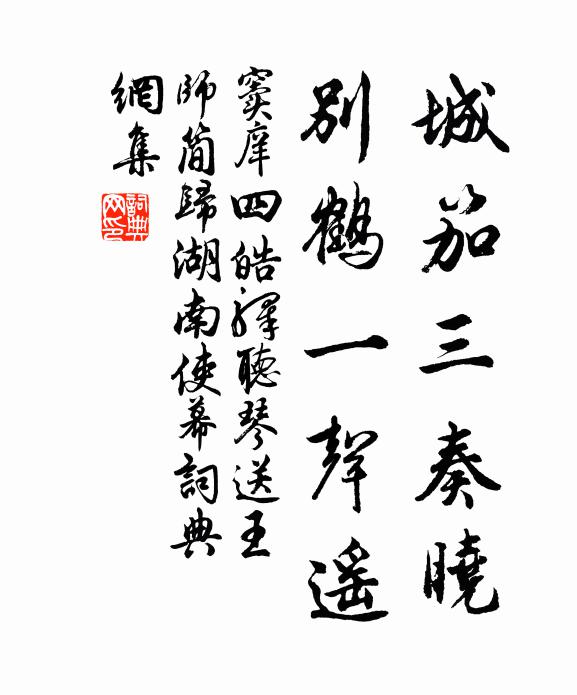 城笳三奏曉
別鶴一聲遙
竇庠四皓驛聽琴送王
師簡歸湖南使幕詞典
網集
詞典網印